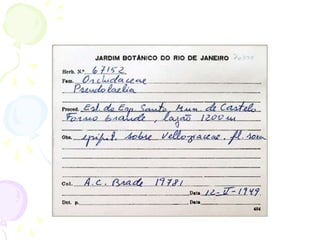 JARDIM BOTÂNICO DO RIO DE JANEIRO
Herb. N.º 67152
Fam. Orchidaceae
Pseudolaelia
Proced. Est. do Esp. Santo, Mun. de Castelo
Forno Grande, 1200 m
Obs. epifit. sobre Velloziaceae. fl.
Col. A.C. Brade 19781
Data 12-V-1949
Det. p. Data